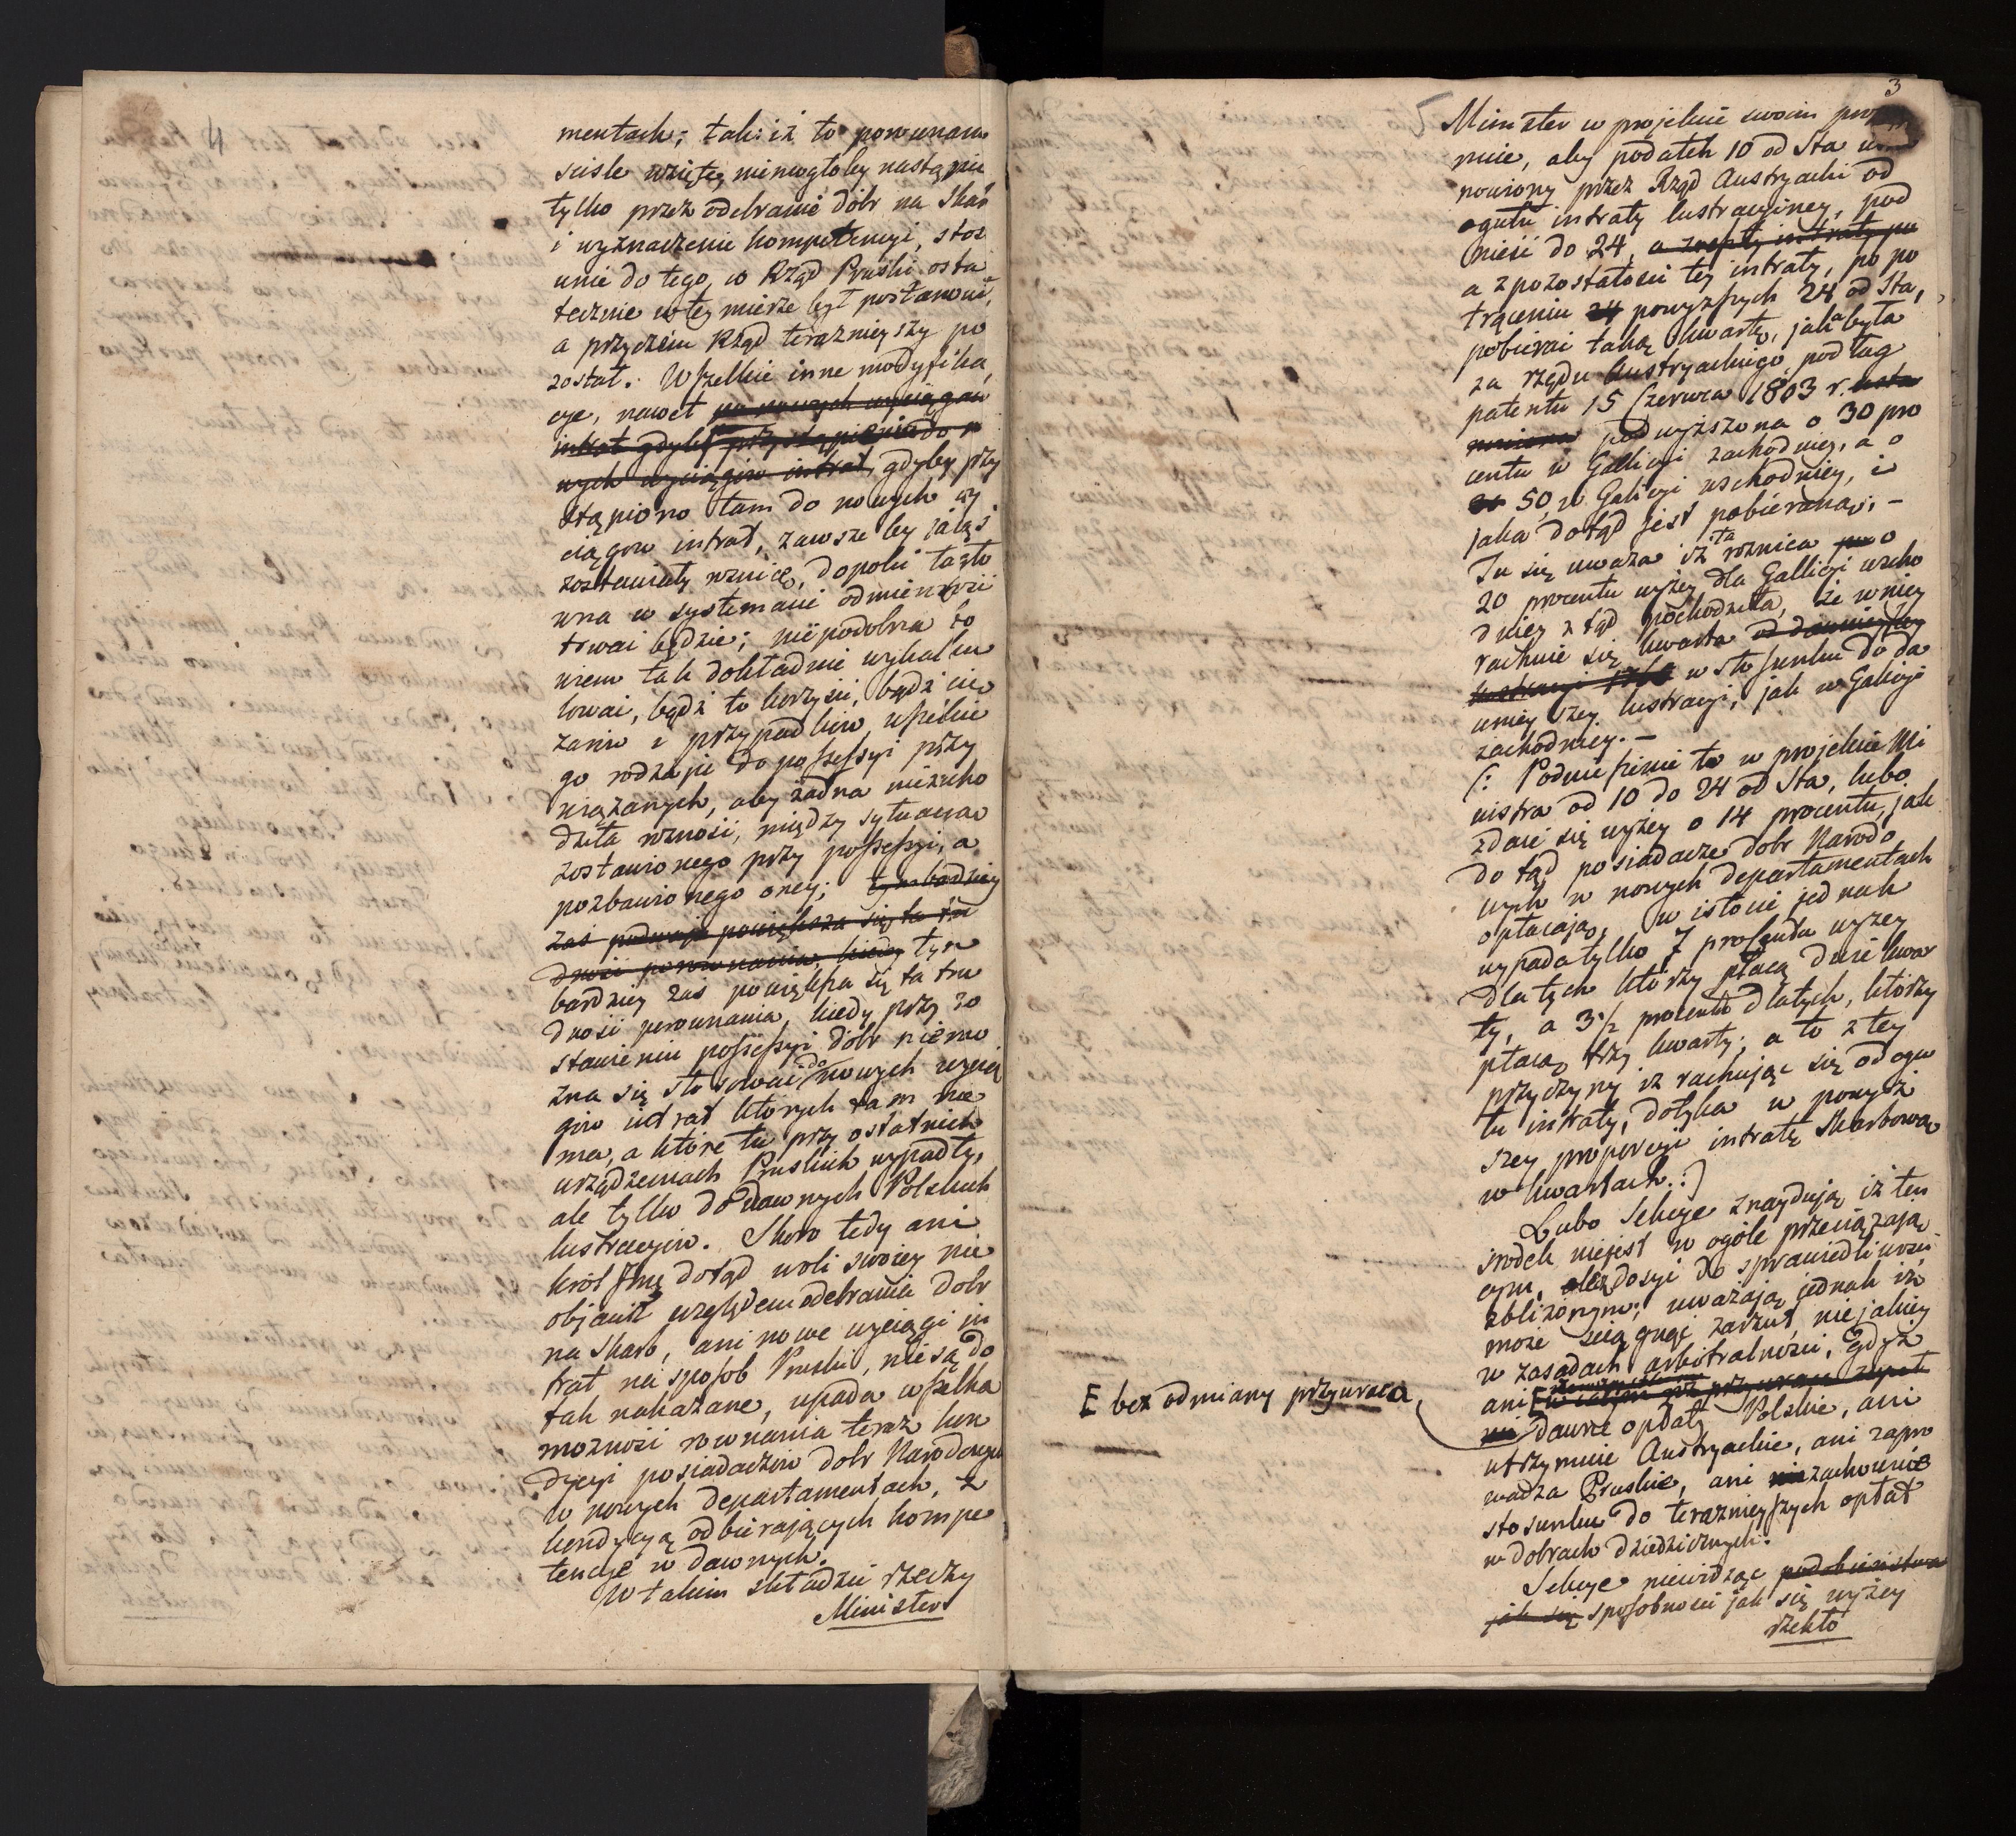 4
mentach; tak: iż to porownanie
sciśle wzięte, niemogłoby nastąpić
tylko przez odebranie dobr na Skarb
i wyznaczenie kompetencyi, stoso
wnie do tego, co Rząd Pruski osta
tecznie w tey mierze był postanowił,
a przyczem Rząd teraznieyszy po
został. Wszelkie inne modyfika
cye, nawet po nowych wyciągow
intrat gdyby przystąpienia do no
wych wyciągow intrat, gdyby przy
stąpiono tam do nowych wy
ciągow intrat, zawsze by jakąś
zostawiały roznicę, dopoki ta sto
wna w systemacie odmienności
trwać będzie; niepodobna bo
wiem tak dokładnie wykalku
lować, bądź to korzyści, bądź cię
żarow i przypadkow wszelkie
go rodzaju do possessyi przy
wiązanych, aby żadna niezacho
dziła rozność, między sytuacyą
zostawionego przy possessyi, a
pozbawionego oney; tym bardziey
zaś podwaja powiększa się ta tru
dność porownania, kiedy tym
bardziey zaś powiększa się ta tru
dność porownania, kiedy przy zo
stawieniu possessyi dobr niemo
żna się stosować do nowych wycią
gow intrat których tam nie
ma, a które tu przy ostatnich
urządzeniach Pruskich wypadły,
ale tylko do dawnych Polskich
lustracyiow. Skoro tedy ani
Krol Jmć dotąd woli swoiey nie
objawił względem odebrania dobr
na Skarb, ani nowe wyciągi in
trat na sposob Pruski, nie są do
tąd nakazane, upada wszelka
możność rownania teraz kon
dycyi posiadaczow dobr Narodowych
w nowych departamentach, z
kondycyą odbierających kompe
tencye w dawnych.
W takim składzie rzeczy
Minister
3
5
Minister w projekcie swoim propo
nuie, aby podatek 10 od Sta usta
nowiony przez Rząd Austryacki od
ogułu intraty lustracyiney, pod
nieść do 24, a z reszty intraty po
a z pozostałości tey intraty, po po
trąceniu 24 powyższych 24 od Sta,
pobierać taką kwartę, jaka była
za rządu Austryackiego podług
patentu 15 Czerwca 1803 r. usta
nowiona podwyższona o 30 pro
centu w Gallicyi zachodniey, a o
20 50 w Galicyi wschodniey, i
jaka dotąd jest pobierana. –
Tu się uważa iż ta roznica po o
20 procentu wyżey dla Gallicyi wscho
dniey ztąd pochodziła, że w niey
rachuie się kwarta od dawnieyszey
lustracyi w stosunku do da
wnieyszey lustracyi, jak w Galicyi
zachodniey. –
(: Podniesienie to w projekcie Mi
nistra od 10 do 24 od Sta, lubo
zdaie się wyżey o 14 procentu, jak
dotąd posiadacze dobr Narodo
wych w nowych departamentach
opłacają, w istocie jednak
wypada tylko 7 procentu wyżey
dla tych którzy płacą dwie kwar
ty, a 3½ procentu dla tych, którzy
płacą trzy kwarty; a to z tey
przyczyny iż rachując się od ogu
łu intraty, dotyka w powyż
szey proporcyi intratę Skarbową
w kwartach. :)
Lubo Sekcye znaydują iż ten
srodek niejest w ogóle przeciążają
cym, ale dosyć do sprawiedliwości
zbliżonym; uważają jednak iż
może sciągnąć zarzut niejakiey
w zasadach arbitralności, gdyż
ani
E bez odmiany przywraca,
dawne opłaty Polskie, ani
utrzymuie Austryackie, ani zapro
wadza Pruskie, ani nie zachowuie
stosunku do teraznieyszych opłat
w dobrach dziedzicznych.
Sekcye niewidząc podobieństwa
jak się sposobności jak się wyżey
rzekło